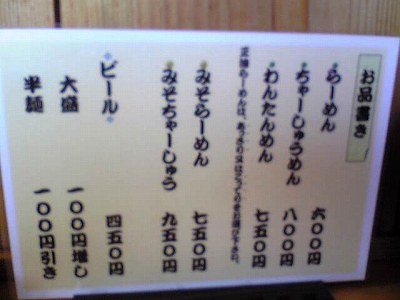 お品書き
らーめん 六〇〇円
ちゃーしゅうめん 八〇〇円
わんたんめん 七五〇円
正油らーめんは、あっさり又はこってりをお選び下さい。
みそらーめん 七五〇円
みそちゃーしゅう 九五〇円
ビール 四五〇円
大盛 一〇〇円増し
半麺 一〇〇円引き